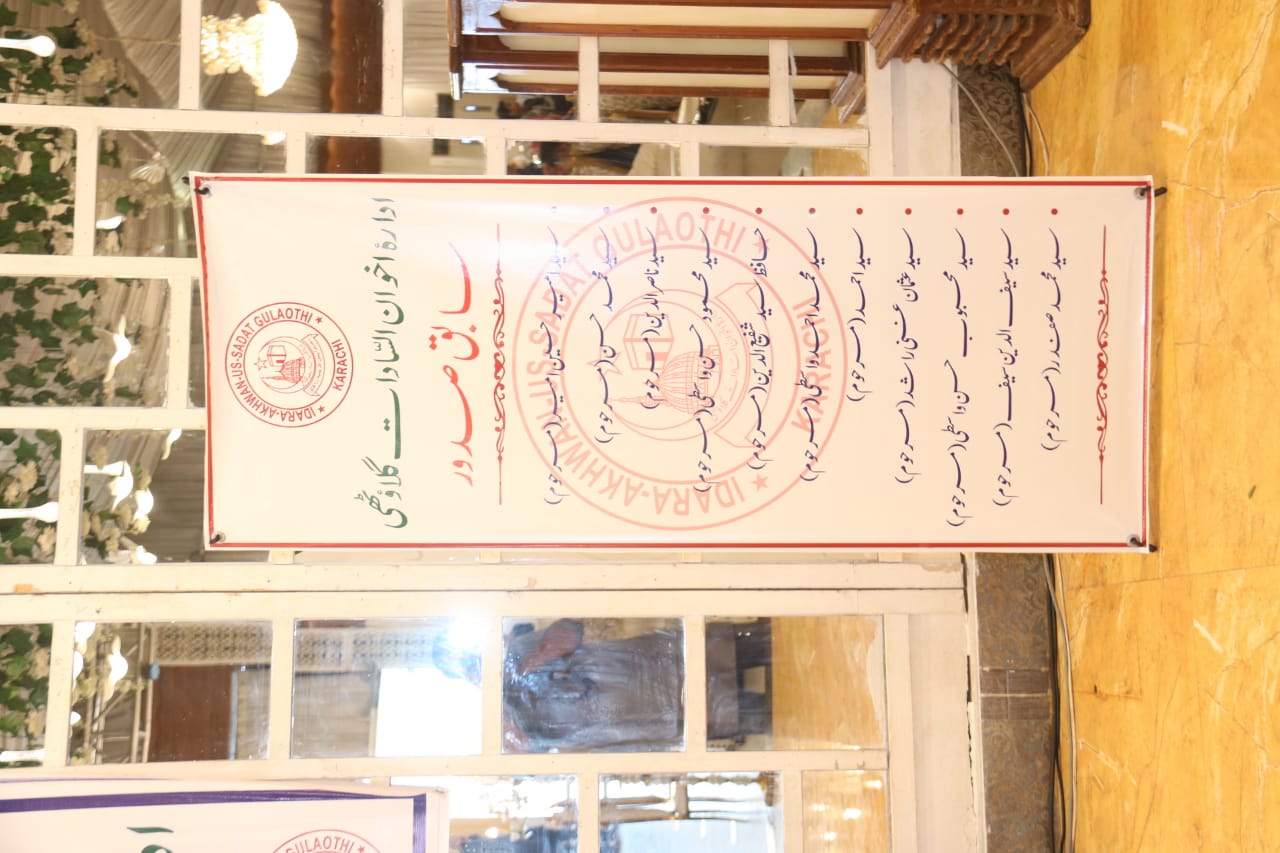 IDARA-AKHWAN-US-SADAT GULAOTHI
KARACHI
ادارۂ اخوان السّادات گلاؤٹھی
سابق صدور
سید امیر حسین امیر (مرحوم)
سید محمد حسن (مرحوم)
سید ناصر الدین (مرحوم)
سید محمود حسن واسطی (مرحوم)
حافظ سید شفیع الدین (مرحوم)
سید محمد احمد واسطی (مرحوم)
سید احمد (مرحوم)
سید عثمان غنی راشد (مرحوم)
سید محبوب حسن واسطی (مرحوم)
سید سیف الدین سیف (مرحوم)
سید محمد صفدر (مرحوم)
IDARA-AKHWAN-US-SADAT GULAOTHI
KARACHI
GULAOTHI